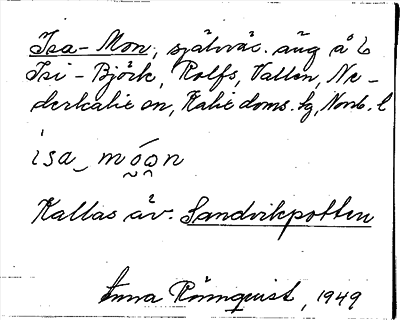 Isa-Mon, självväs. äng å
Isi-Björk, Rolfs, Vallen, Ne-
derkalix sn, Kalix doms.lg, Norrb. l
isa_móọn
Kallas äv. Sandvikpotten
Anna Rönnquist, 1949